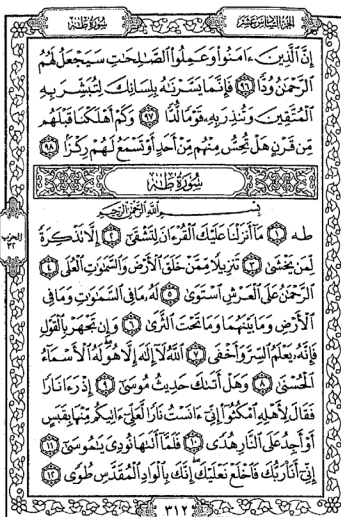 الجزء السادس عشر
سورة طه
إِنَّ ٱلَّذِينَ ءَامَنُوا۟ وَعَمِلُوا۟ ٱلصَّٰلِحَٰتِ سَيَجْعَلُ لَهُمُ
ٱلرَّحْمَٰنُ وُدًّا ٩٦ فَإِنَّمَا يَسَّرْنَٰهُ بِلِسَانِكَ لِتُبَشِّرَ بِهِ
ٱلْمُتَّقِينَ وَتُنذِرَ بِهِۦ قَوْمًا لُّدًّا ٩٧ وَكَمْ أَهْلَكْنَا قَبْلَهُم
مِّن قَرْنٍ هَلْ تُحِسُّ مِنْهُم مِّنْ أَحَدٍ أَوْ تَسْمَعُ لَهُمْ رِكْزًۢا ٩٨
سُورَةُ طه
بِسْمِ ٱللَّهِ ٱلرَّحْمَٰنِ ٱلرَّحِيمِ
طه ١ مَآ أَنزَلْنَا عَلَيْكَ ٱلْقُرْءَانَ لِتَشْقَىٰٓ ٢ إِلَّا تَذْكِرَةً
لِّمَن يَخْشَىٰ ٣ تَنزِيلًا مِّمَّنْ خَلَقَ ٱلْأَرْضَ وَٱلسَّمَٰوَٰتِ ٱلْعُلَى ٤
ٱلرَّحْمَٰنُ عَلَى ٱلْعَرْشِ ٱسْتَوَىٰ ٥ لَهُۥ مَا فِى ٱلسَّمَٰوَٰتِ وَمَا فِى
ٱلْأَرْضِ وَمَا بَيْنَهُمَا وَمَا تَحْتَ ٱلثَّرَىٰ ٦ وَإِن تَجْهَرْ بِٱلْقَوْلِ
فَإِنَّهُۥ يَعْلَمُ ٱلسِّرَّ وَأَخْفَى ٧ ٱللَّهُ لَآ إِلَٰهَ إِلَّا هُوَ لَهُ ٱلْأَسْمَآءُ
ٱلْحُسْنَىٰ ٨ وَهَلْ أَتَىٰكَ حَدِيثُ مُوسَىٰٓ ٩ إِذْ رَءَا نَارًا
فَقَالَ لِأَهْلِهِ ٱمْكُثُوٓا۟ إِنِّىٓ ءَانَسْتُ نَارًا لَّعَلِّىٓ ءَاتِيكُم مِّنْهَا بِقَبَسٍ
أَوْ أَجِدُ عَلَى ٱلنَّارِ هُدًى ١٠ فَلَمَّآ أَتَىٰهَا نُودِىَ يَٰمُوسَىٰٓ ١١
إِنِّىٓ أَنَا۠ رَبُّكَ فَٱخْلَعْ نَعْلَيْكَ إِنَّكَ بِٱلْوَادِ ٱلْمُقَدَّسِ طُوًى ١٢
الحزب
٣٢
٣١٢